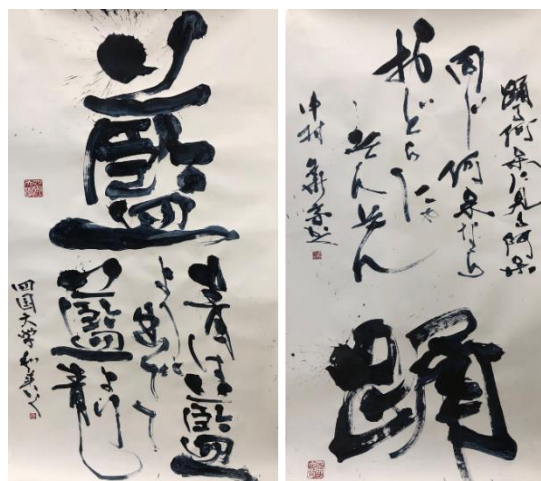 藍
青は藍
より出でて
藍より青し
四国大学
踊る阿呆に見る阿呆
同じ阿呆なら
おどらにゃ
そんそん
中村
踊